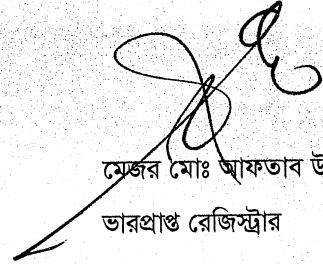 মেজর মোঃ আফতাব উ
ভারপ্রাপ্ত রেজিস্ট্রার